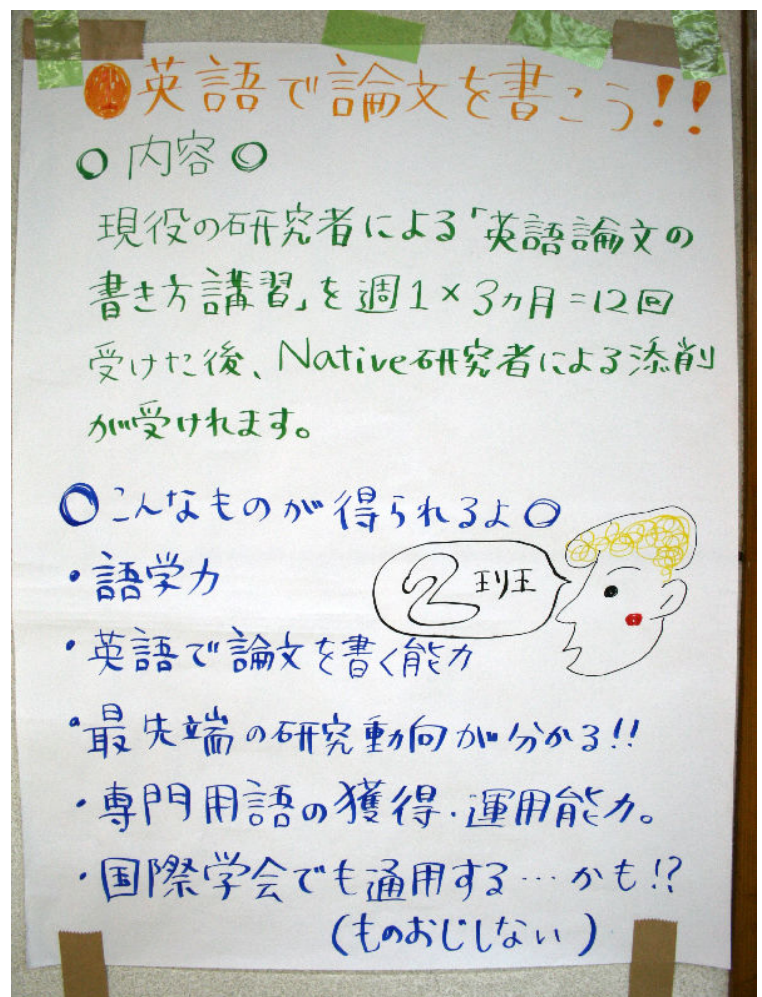 英語で論文を書こう!!
○内容○
現役の研究者による「英語論文の
書き方講習」を週1×3ヵ月=12回
受けた後、Native研究者による添削
が受けれます。
○こんなものが得られるよ○
・語学力
2班
・英語で論文を書く能力
・最先端の研究動向が分かる!!
・専門用語の獲得・運用能力。
・国際学会でも通用する…かも!?
(ものおじしない)